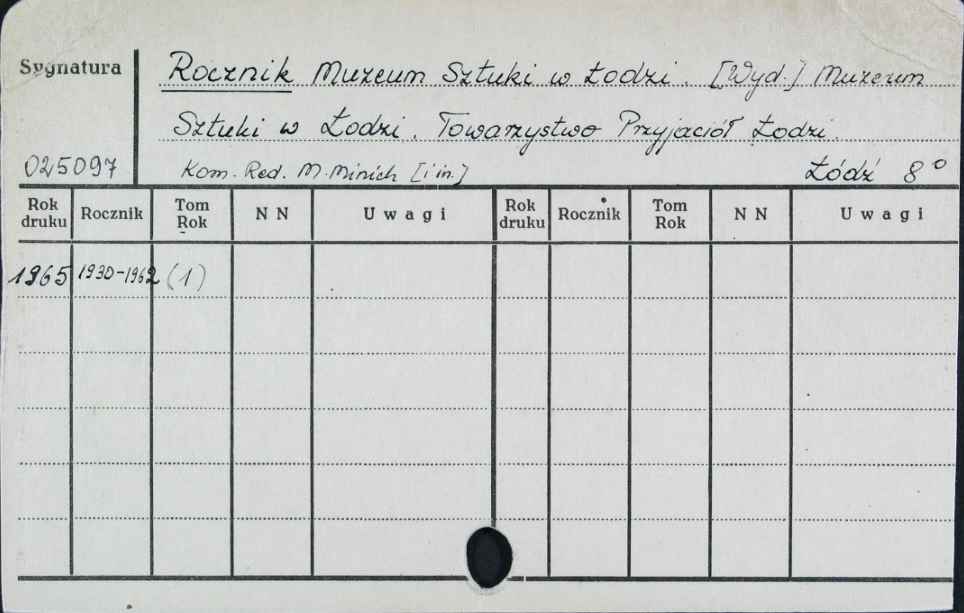 Sygnatura
Rocznik Muzeum Sztuki w Łodzi. [Wyd.] Muzeum
Sztuki w Łodzi. Towarzystwo Przyjaciół Łodzi.
025097
Kom. Red. M. Minich [i in.] Łódź 8°
Rok druku Rocznik Tom Rok NN Uwagi Rok druku Rocznik Tom Rok NN Uwagi
1965 1930-1962 (1)